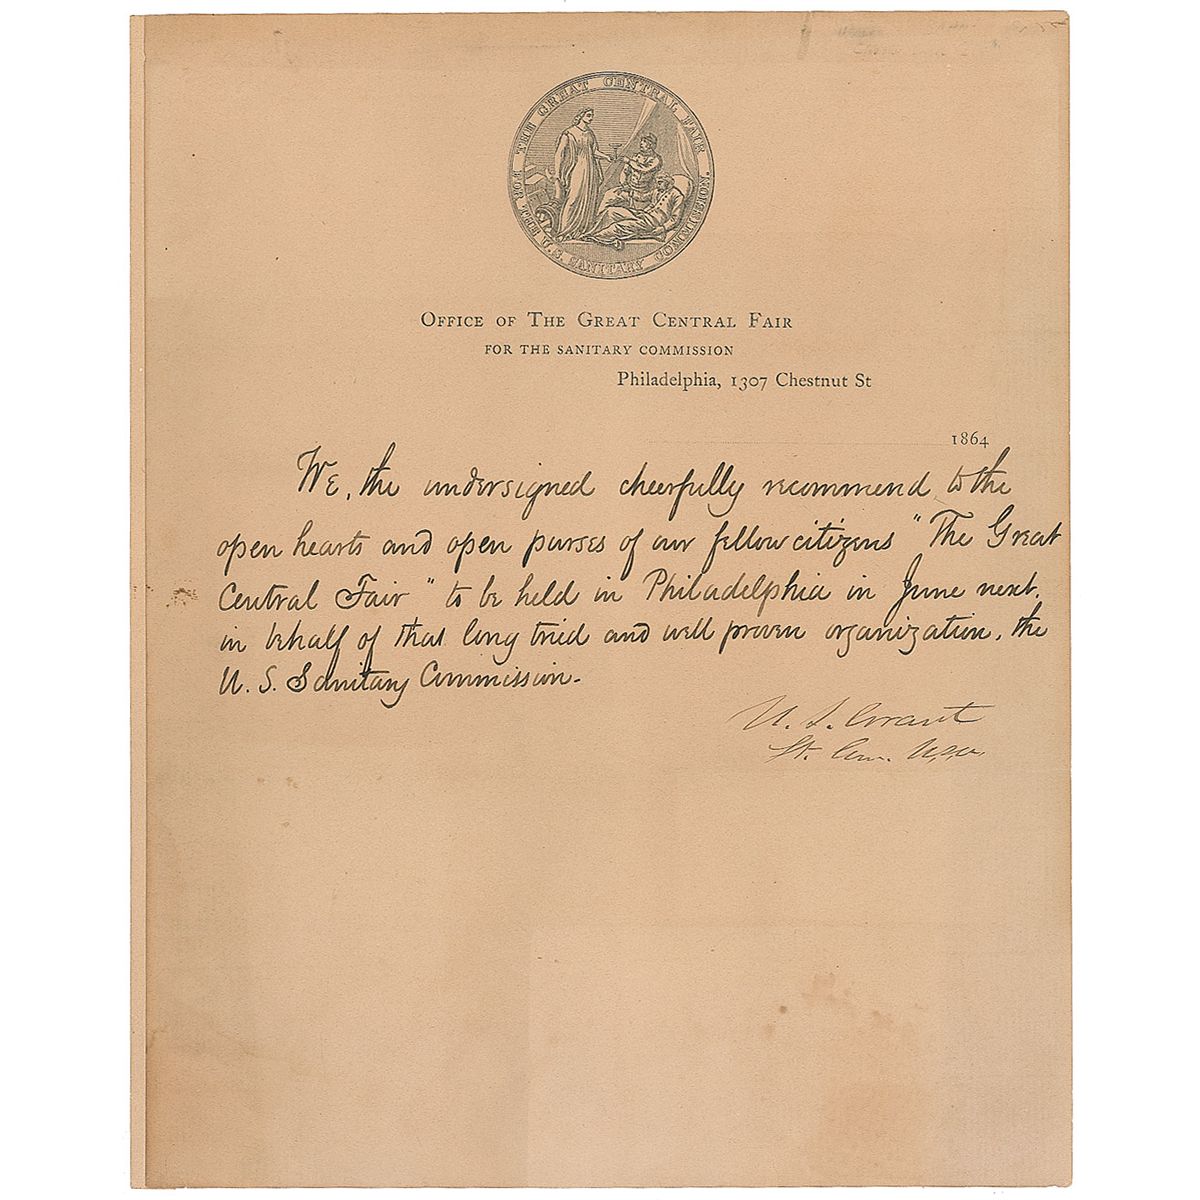 THE GREAT CENTRAL FAIR
FOR THE U.S. SANITARY COMMISSION.
OFFICE OF THE GREAT CENTRAL FAIR
FOR THE SANITARY COMMISSION
Philadelphia, 1307 Chestnut St
1864
We, the undersigned cheerfully recommend, to the
open hearts and open purses of our fellow citizens "The Great
Central Fair" to be held in Philadelphia in June next,
in behalf of that long tried and well proven organization, the
U. S. Sanitary Commission.
U. S. Grant
Lt. Gen. U.S.A.